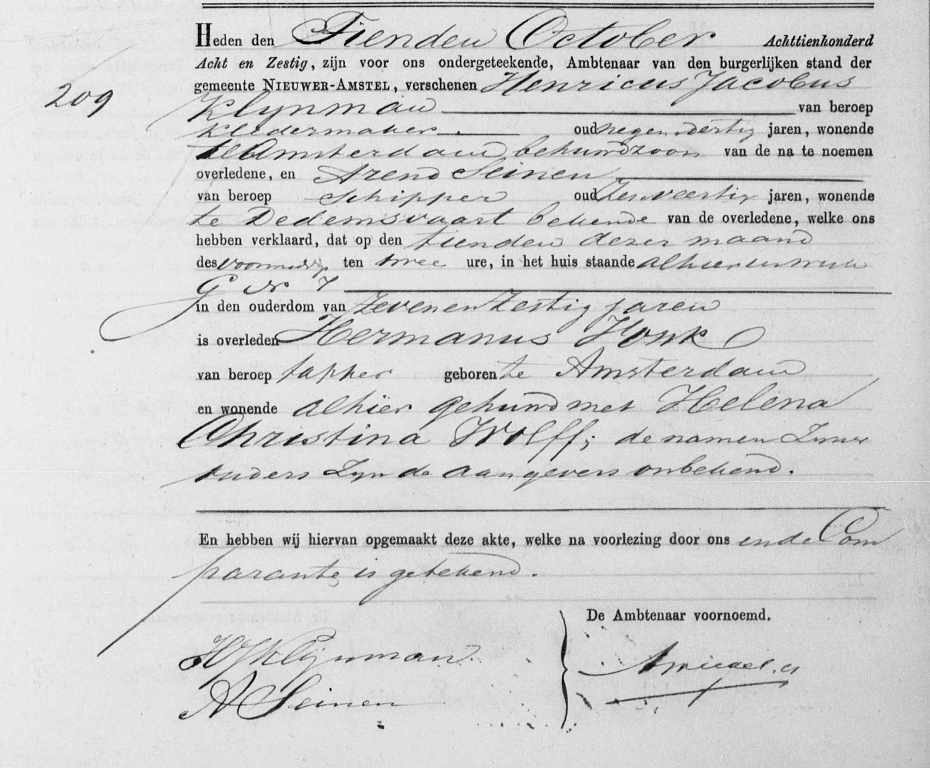 Heden den Tienden October Achttienhonderd
Acht en Zestig, zijn voor ons ondergeteekende, Ambtenaar van den burgerlijken stand der
209
gemeente NIEUWER-AMSTEL, verschenen Henricus Jacobus
Klynman van beroep
kledermaker oud negen dertig jaren, wonende
te Amsterdam behuwdzoon van de na te noemen
overledene, en Arend Seinen
van beroep Schipper oud jaren, wonende
te Dedemsvaart bekende van de overledene, welke ons
hebben verklaard, dat op den tienden dezer maand
des voormiddags ten twee ure, in het huis staande alhier in wijk
G No 7
in den ouderdom van zeven en zestig jaren
is overleden Hermanus Honk
van beroep tapper geboren te Amsterdam
en wonende alhier gehuwd met Helena
Christina Wolff; de namen zyner
ouders zyn de aangevers onbekend.
En hebben wij hiervan opgemaakt deze akte, welke na voorlezing door ons en de Com
parante, is getekend.
De Ambtenaar voornoemd.
HJ Klijnman
A Seinen